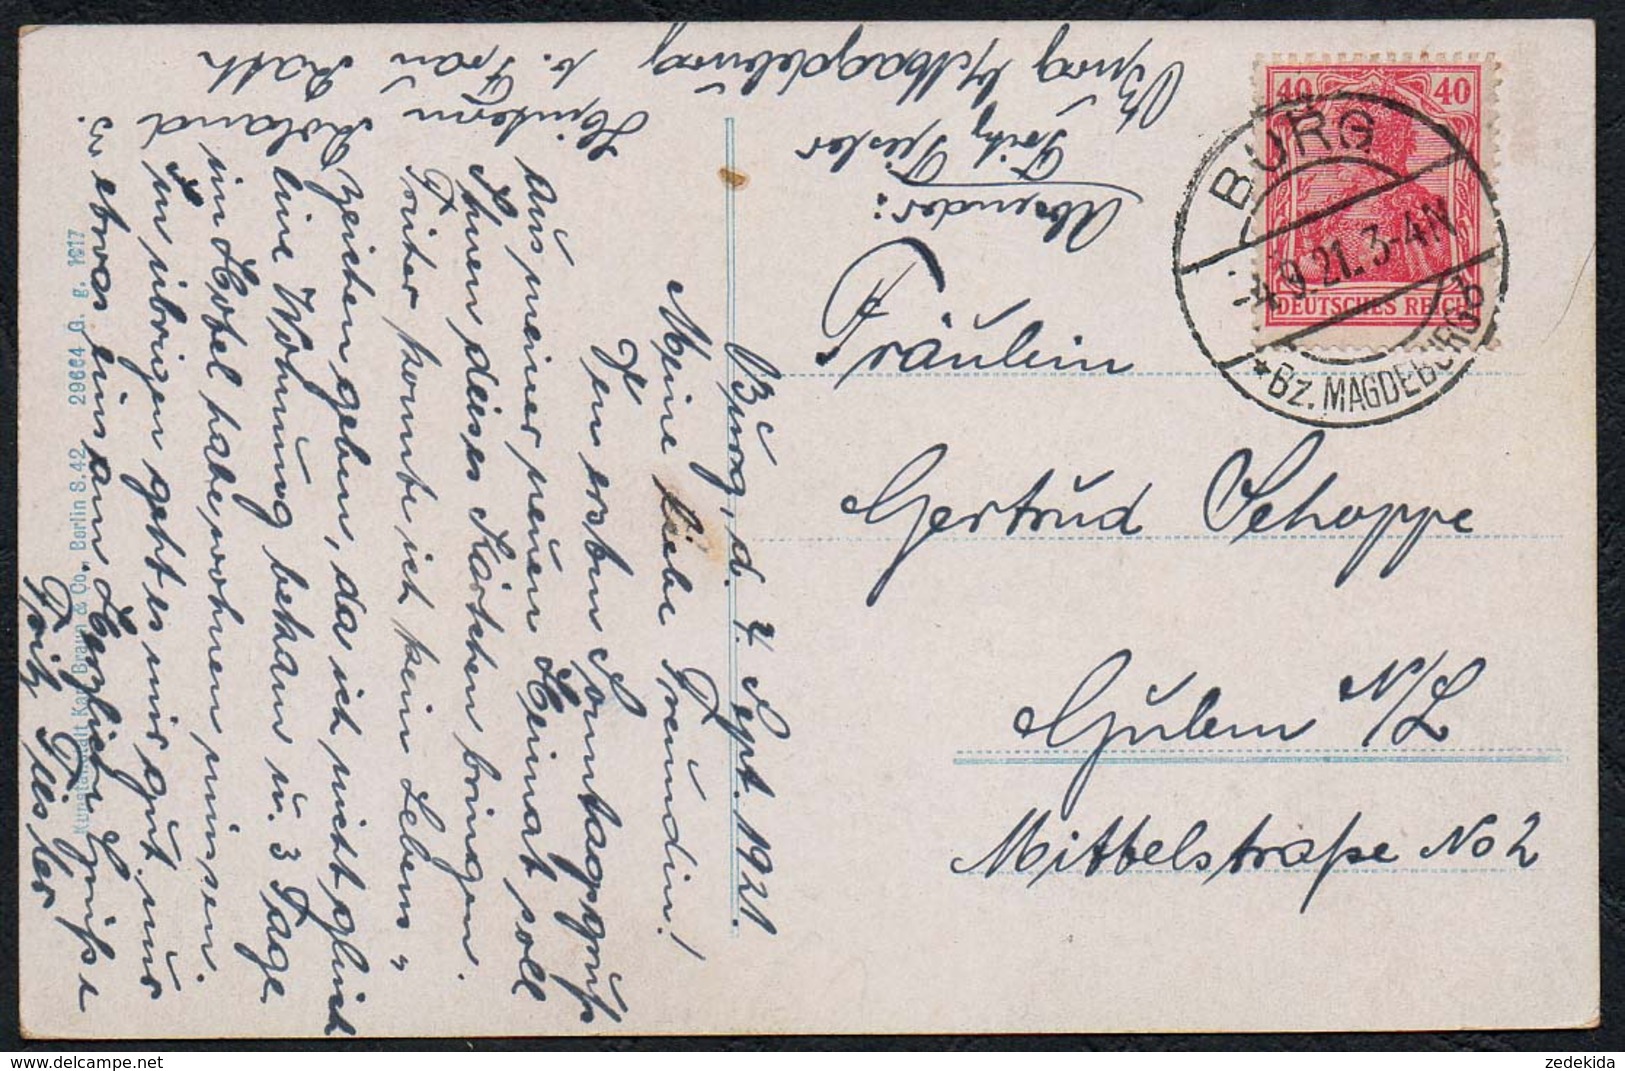 Burg, d. 4. Sept. 1921.
Meine liebe Freundin!
Den ersten Sonntagsgruß
aus meiner neuen Heimat soll
Ihnen dieses Kärtchen bringen.
Früher konnte ich kein Lebens-
zeichen geben, da ich nicht gleich
eine Wohnung bekam u. 3 Tage
im Hotel habe wohnen müssen.
Im übrigen geht es mir gut, nur
etwas einsam. Herzliche Grüße
Fritz Tiesler
Absender:
Fritz Tiesler
Burg b/Magdeburg
Hinterm Roland 3.
b. Frau Rath
Fräulein
Gertrud Schoppe
Guben N/L
Mittelstraße No 2
40 40
DEUTSCHES REICH
BURG
4.9.21. 3-4N
* Bz. MAGDEBURG b
Kunstanstalt Karl Braun & Co., Berlin S.42 29664 G. g. 1917
zedekida